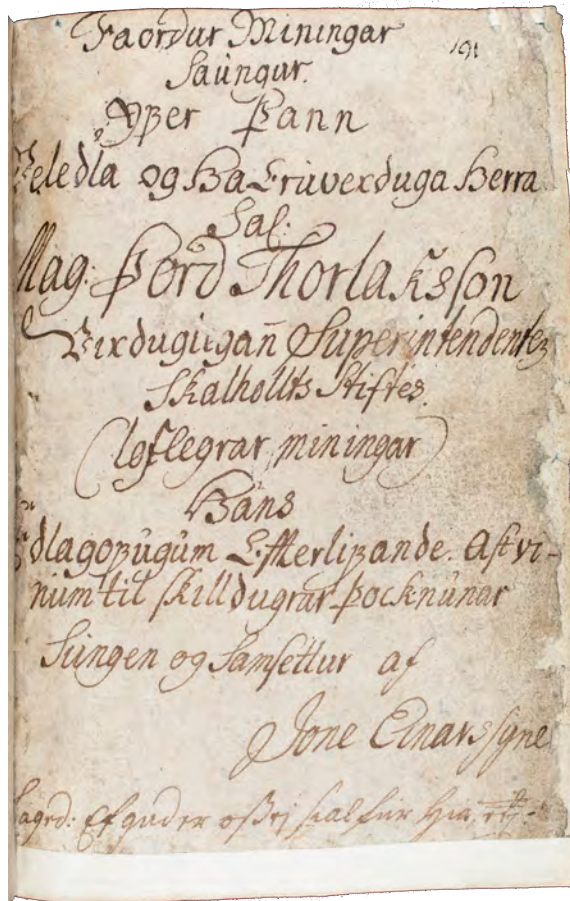 Faordur Miningar
Saungur.
191
Yfver Þann
Veledla og Ha Eruverduga Herra
Sal:
Mag: Þord Thorlaksson
Virdugligañ Superintendentez
Skalhollts Stiftez.
(loflegrar miningar)
Hans
Edlagofzugum Efterlifzande. Astvi-
num til skilldugrar þocknunar
Sungen og Samsettur af
Jone Einarssyne
Ef guder oss ei